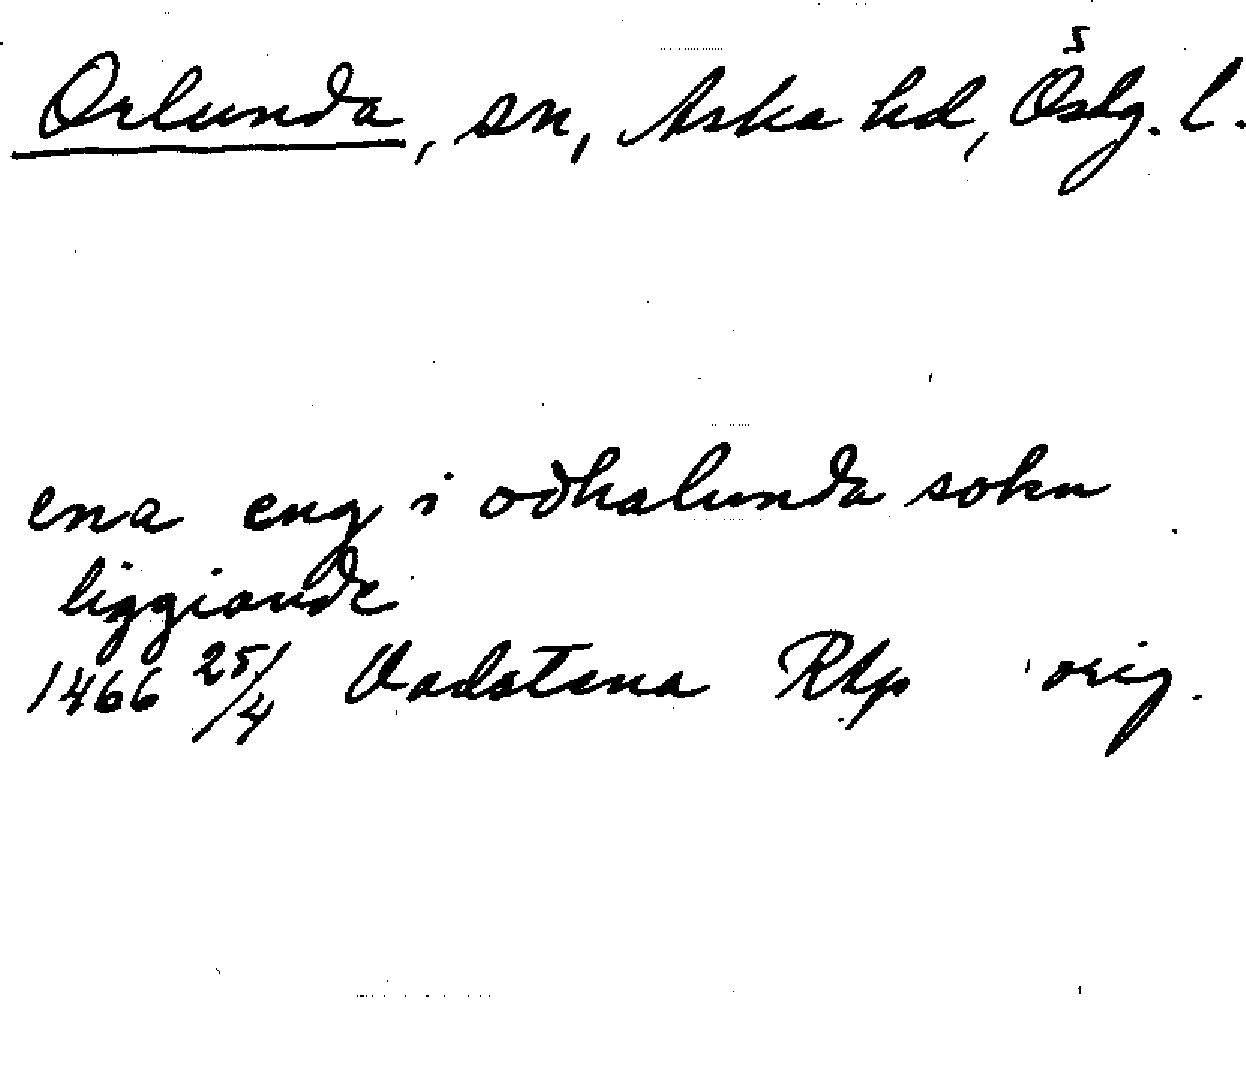 Orlunda, sn, Aska hd, Östg. l.
ena eng i odhalunda sokn
liggiande
1466 25/4 Vadstena Rhp orig.